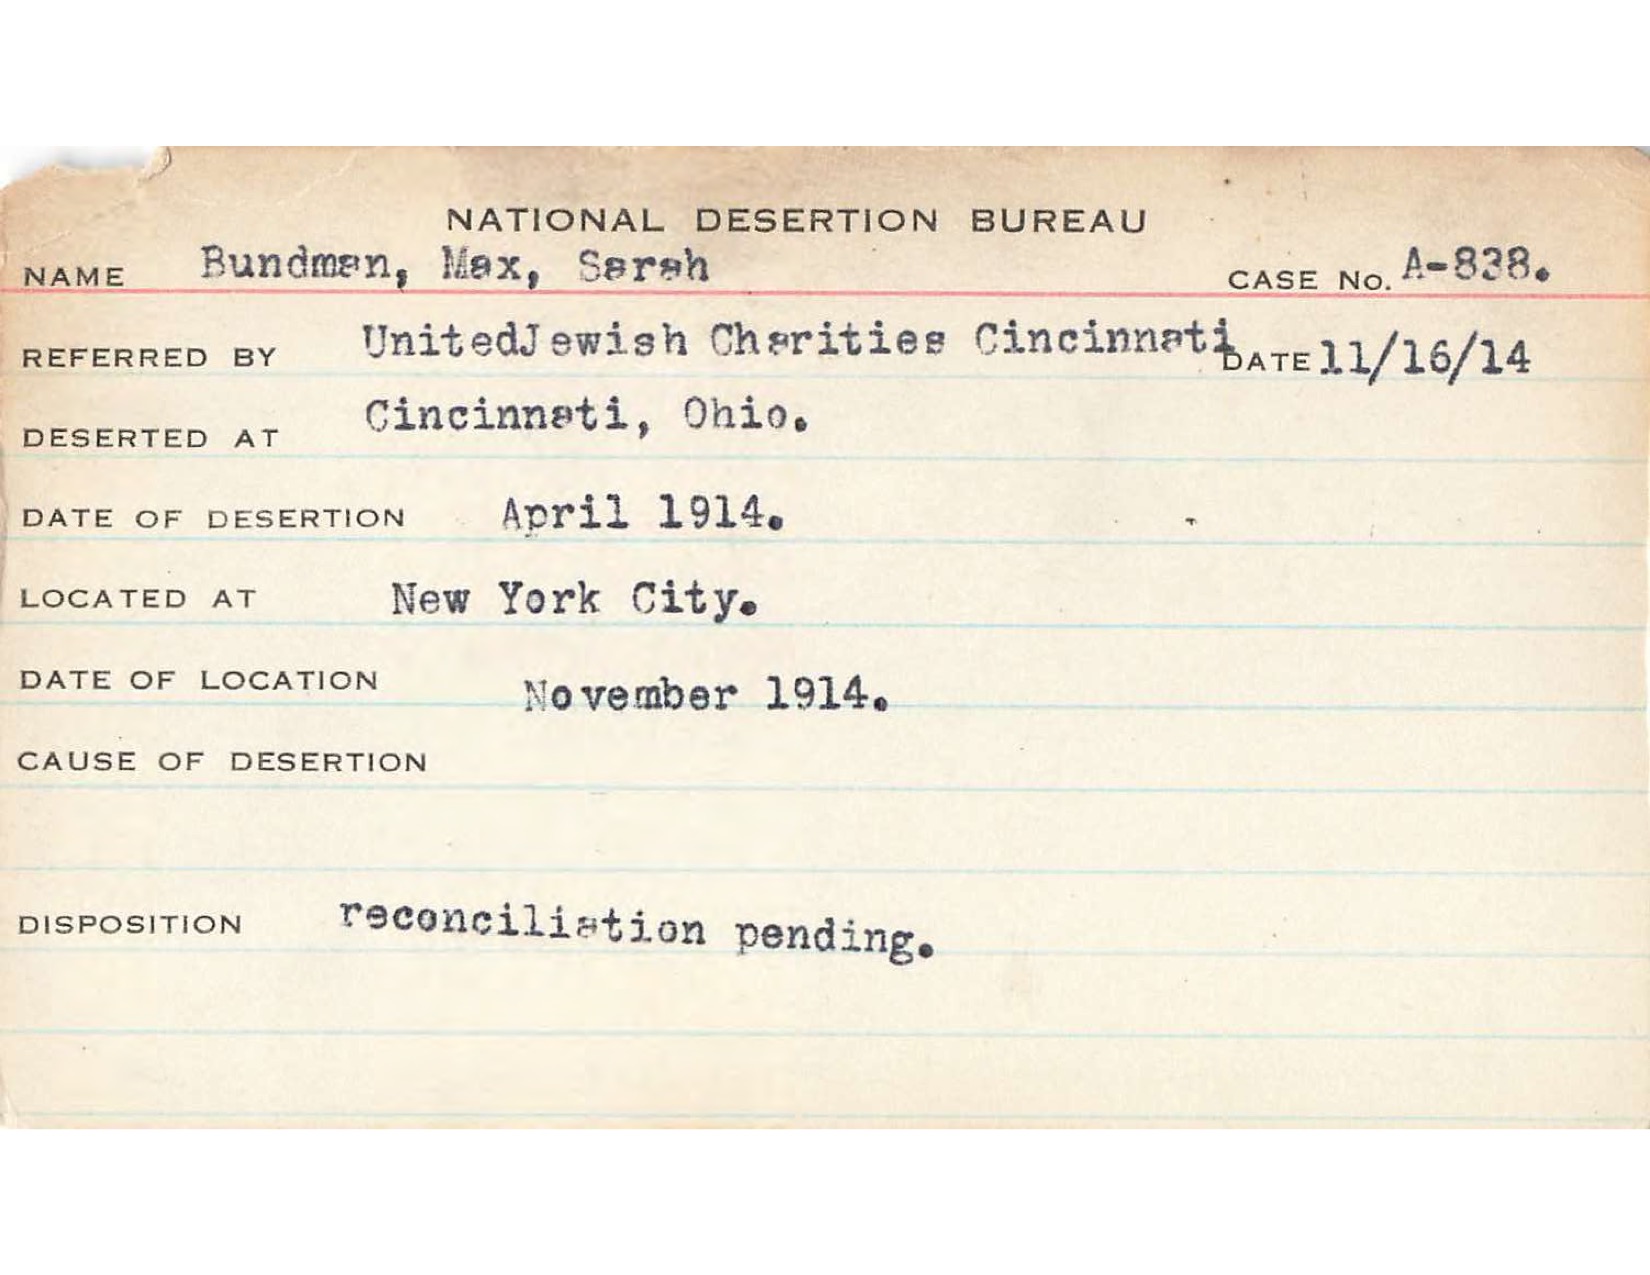 NATIONAL DESERTION BUREAU
NAME Bundman, Max, Sarah CASE No. A-838.
REFERRED BY UnitedJewish Charities Cincinnati DATE 11/16/14
DESERTED AT Cincinnati, Ohio.
DATE OF DESERTION April 1914.
LOCATED AT New York City.
DATE OF LOCATION November 1914.
CAUSE OF DESERTION
DISPOSITION reconciliation pending.